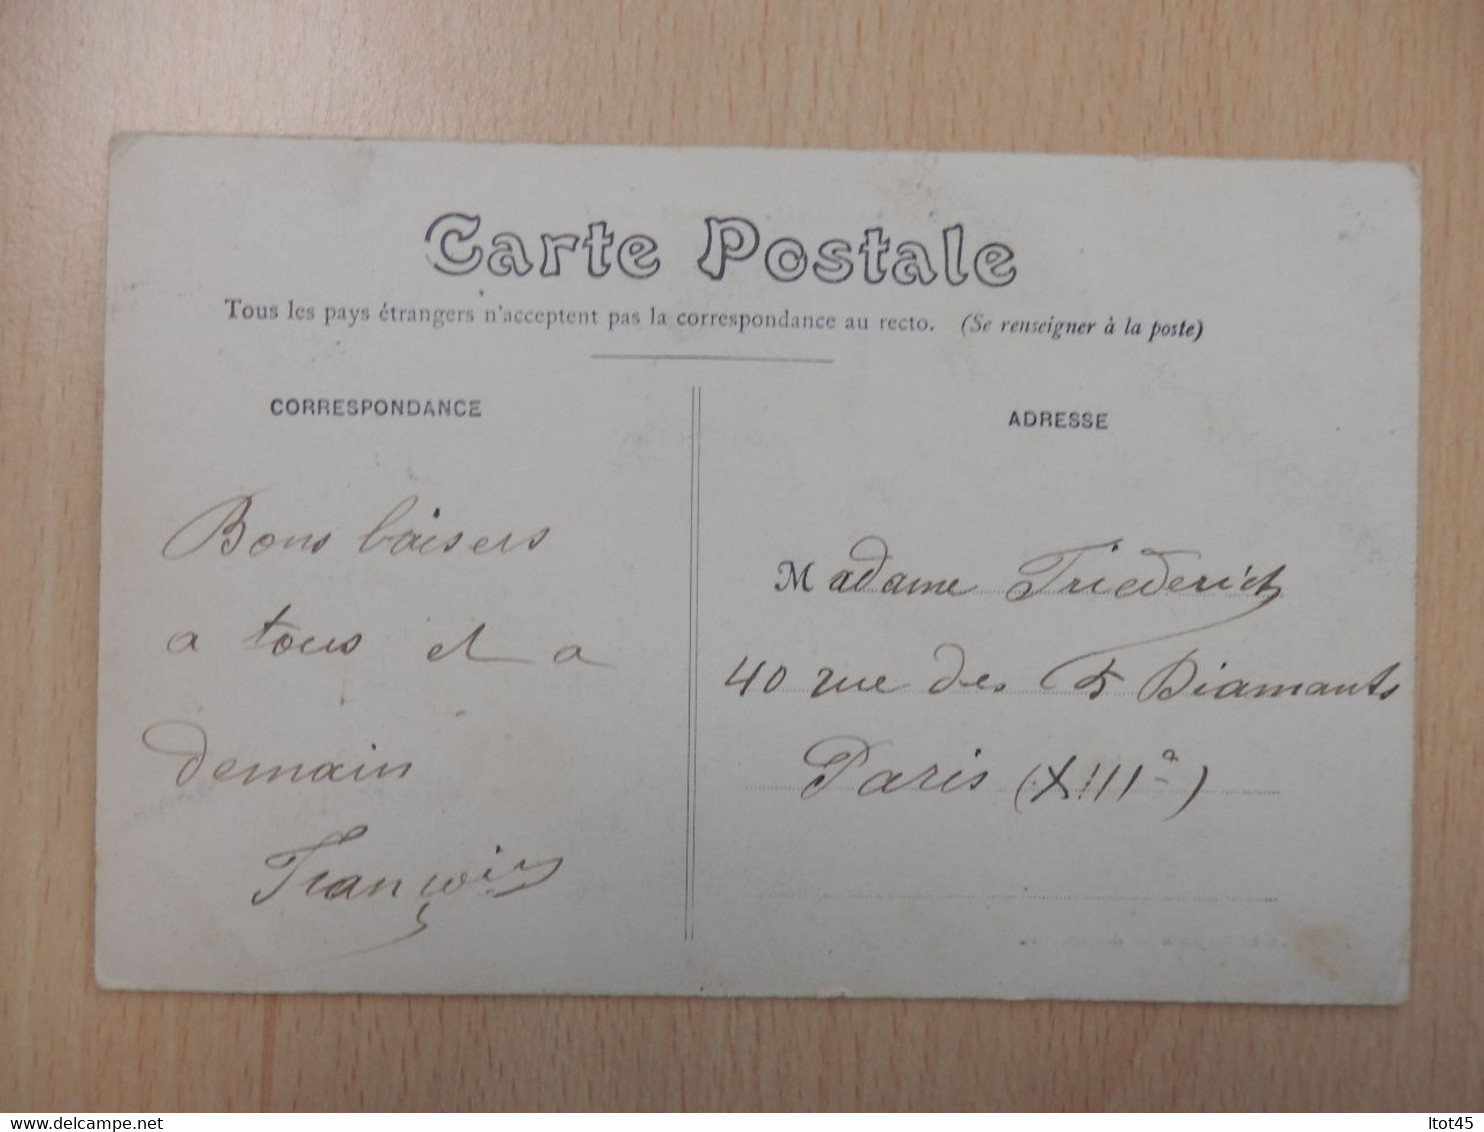 Carte Postale
Tous les pays étrangers n'acceptent pas la correspondance au recto. (Se renseigner à la poste)
CORRESPONDANCE
ADRESSE
Bons baisers
a tous et a
demain
François
Madame Friederich
40 rue des 5 Diamants
Paris (XIIIe)
delcampe.net
ltot45